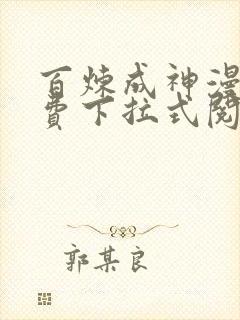 百炼成神漫
费下拉式阅
郭某良